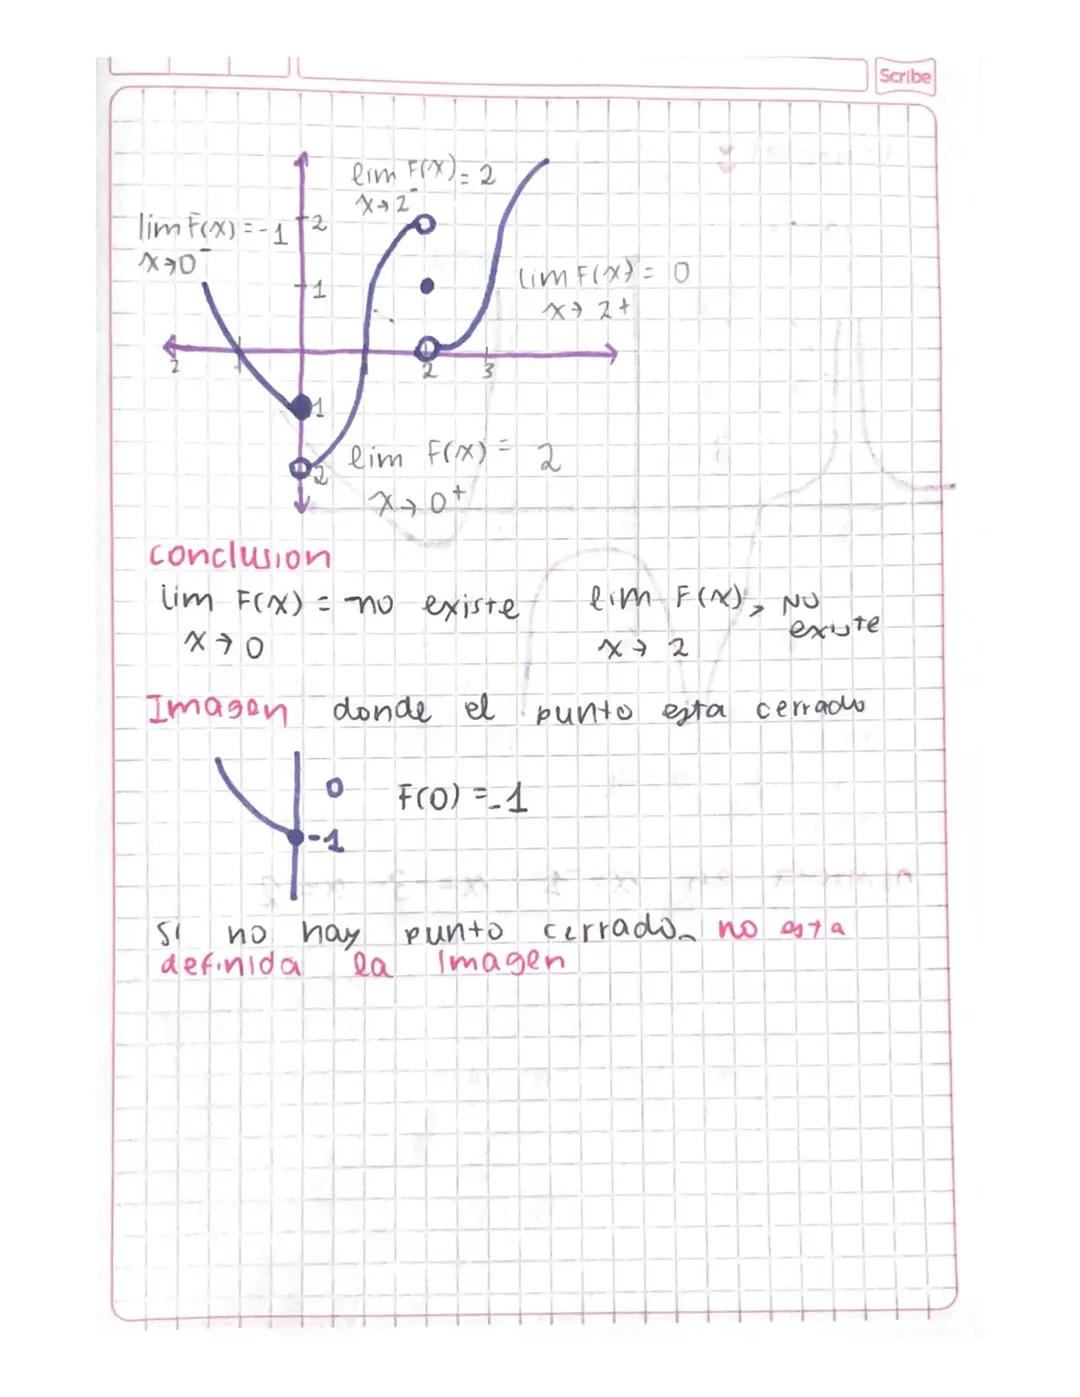 Scribe
lim F(x) = 2
x→2⁻
lim F(x) = -1
x→0⁻
2
1
lim F(x) = 0
x→ 2+
2
2
3
1
2
lim F(x) = 2
x→0+
conclusion
lim F(x) = no existe
x→0
lim F(x), no
existe
x→ 2
Imagen donde el punto esta cerrado
0
F(0) =-1
-1
Si no hay punto cerrado no esta
definida la Imagen